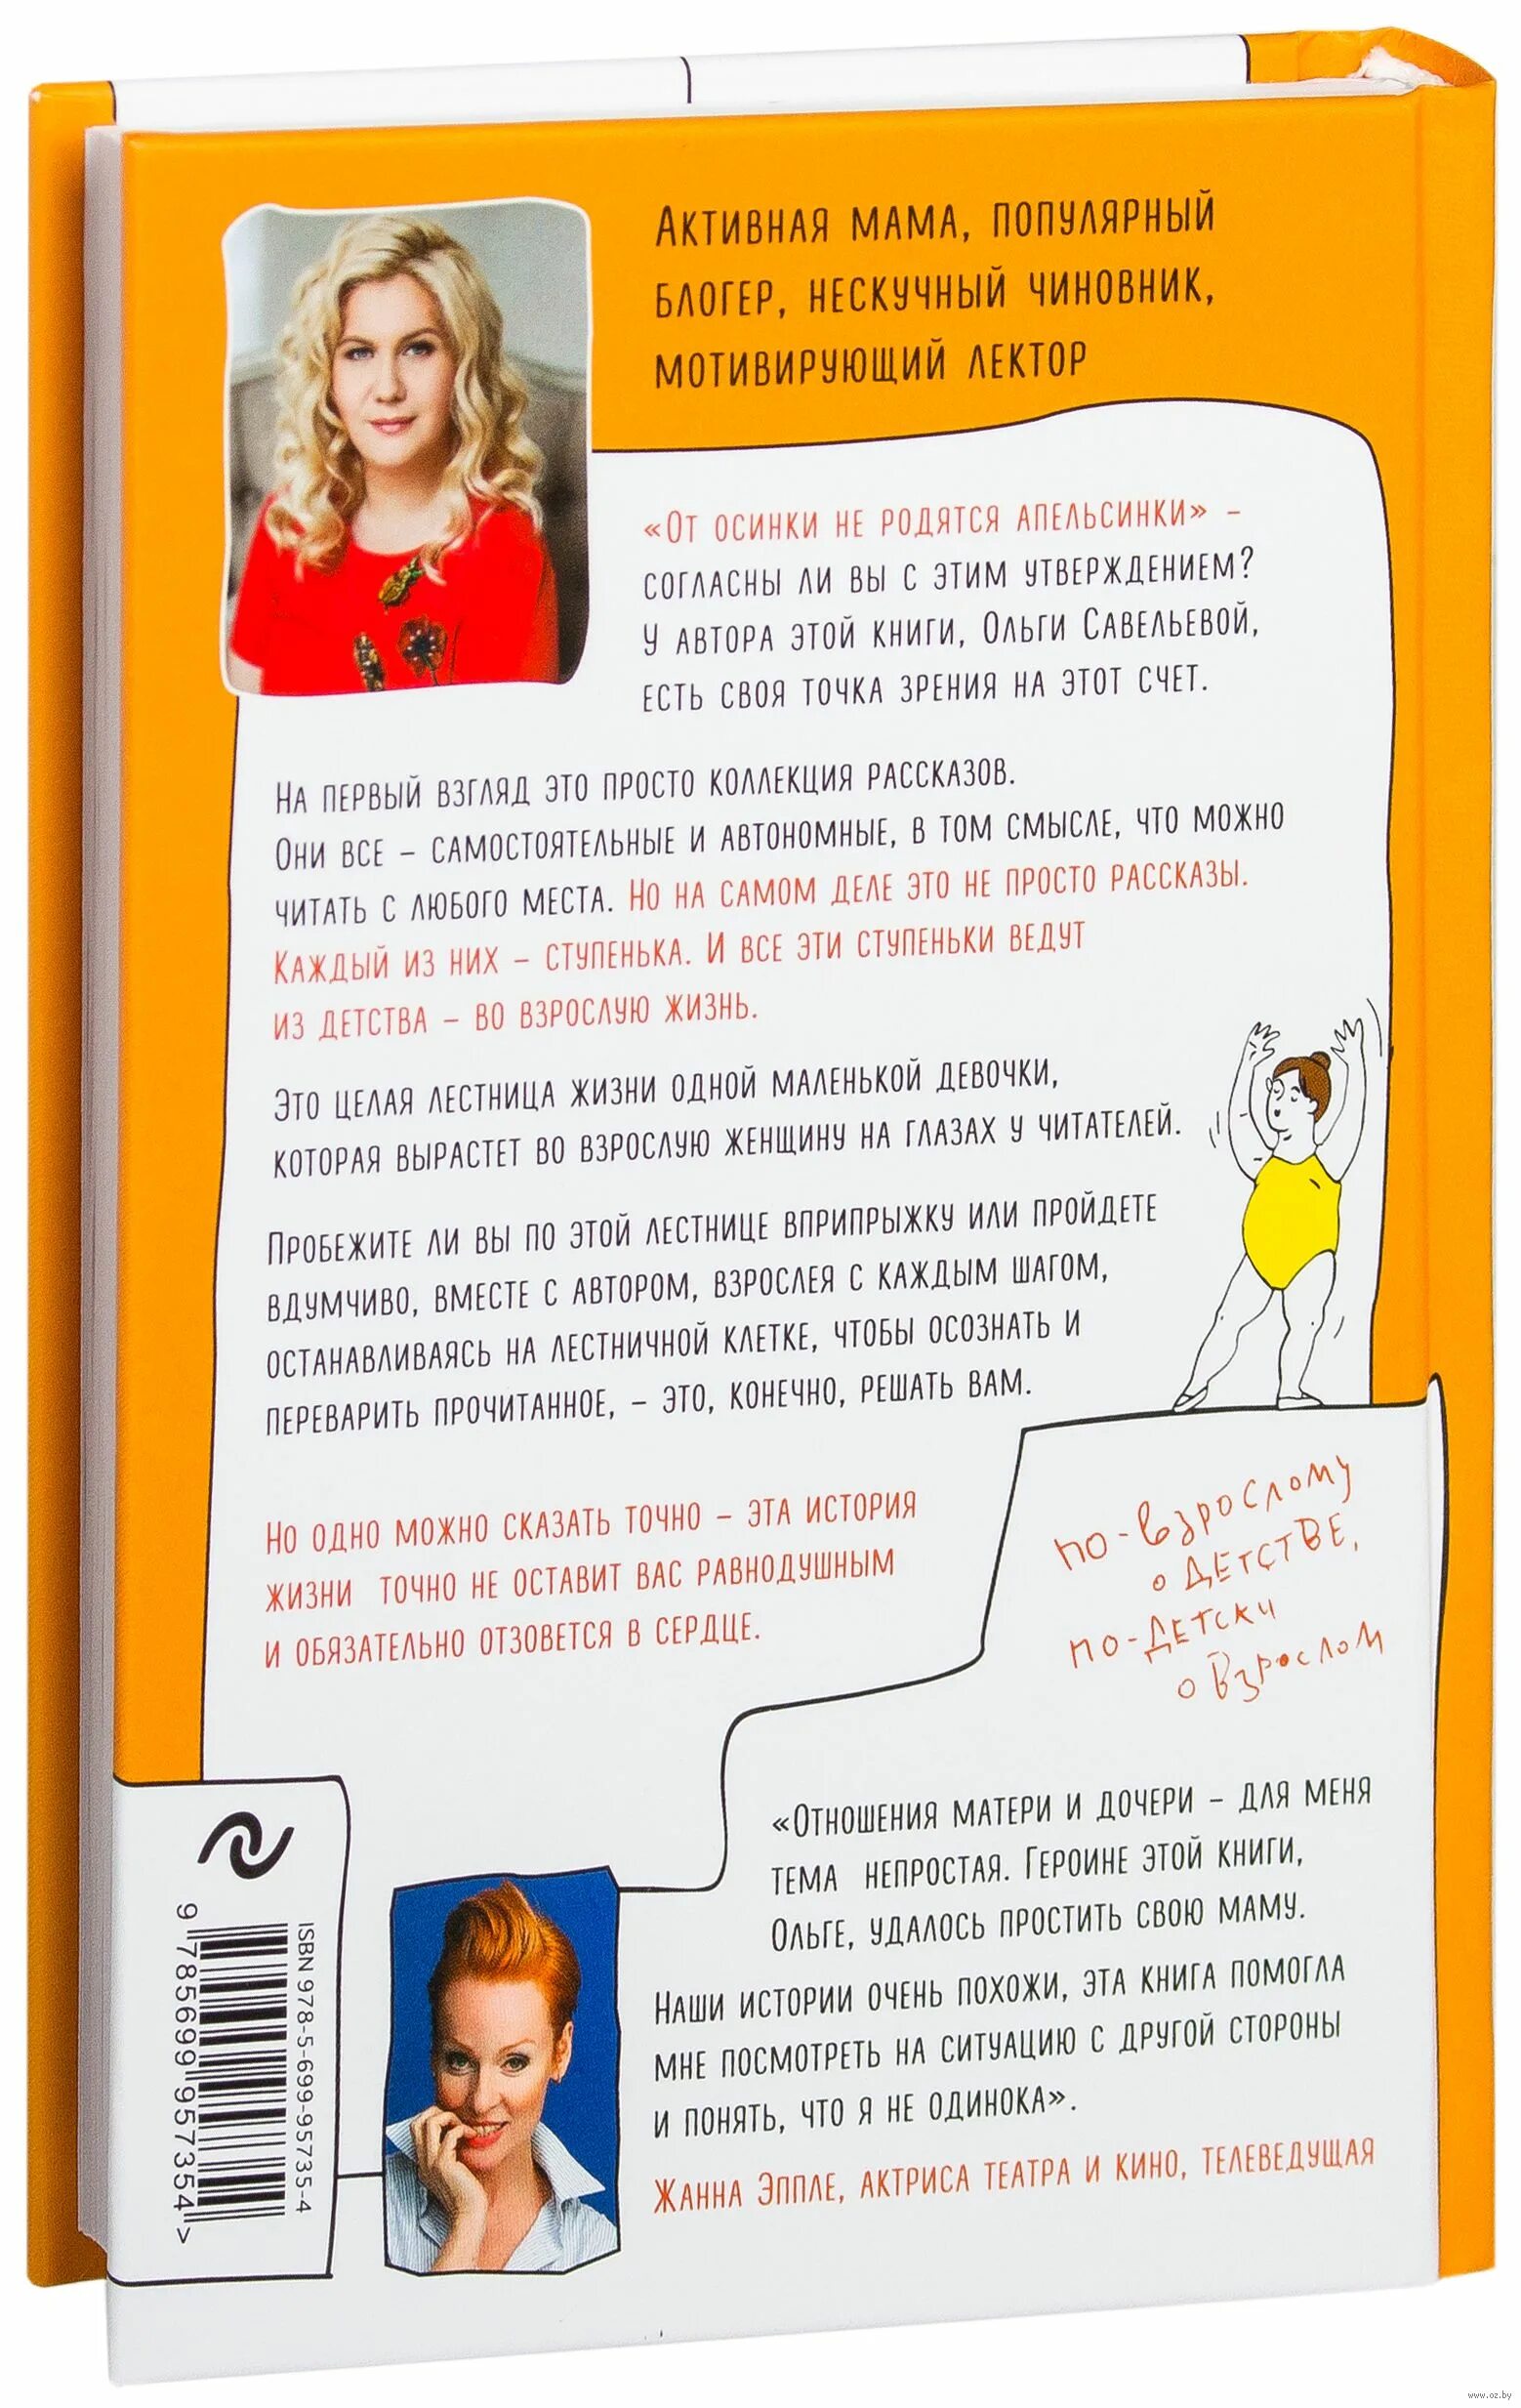 Активная мама, популярный
блогер, нескучный чиновник,
мотивирующий лектор
«От осинки не родятся апельсинки» –
согласны ли вы с этим утверждением?
У автора этой книги, Ольги Савельевой,
есть своя точка зрения на этот счет.
На первый взгляд это просто коллекция рассказов.
Они все – самостоятельные и автономные, в том смысле, что можно
читать с любого места. Но на самом деле это не просто рассказы.
Каждый из них – ступенька. И все эти ступеньки ведут
из детства – во взрослую жизнь.
Это целая лестница жизни одной маленькой девочки,
которая вырастет во взрослую женщину на глазах у читателей.
Пробежите ли вы по этой лестнице вприпрыжку или пройдете
вдумчиво, вместе с автором, взрослея с каждым шагом,
останавливаясь на лестничной клетке, чтобы осознать и
переварить прочитанное, – это, конечно, решать вам.
Но одно можно сказать точно – эта история
жизни точно не оставит вас равнодушным
и обязательно отзовется в сердце.
по-взрослому
о детстве,
по-детски
о взрослом
«Отношения матери и дочери – для меня
тема непростая. Героине этой книги,
Ольге, удалось простить свою маму.
Наши истории очень похожи, эта книга помогла
мне посмотреть на ситуацию с другой стороны
и понять, что я не одинока».
Жанна Эппле, актриса театра и кино, телеведущая
ISBN 978-5-699-95735-4
9 785699 957354 >
www.oz.by